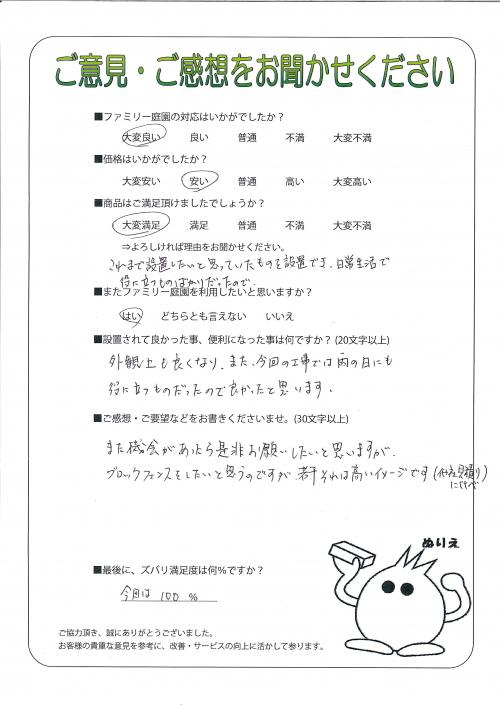 ご意見・ご感想をお聞かせください
■ファミリー庭園の対応はいかがでしたか？
大変良い 良い 普通 不満 大変不満
■価格はいかがでしたか？
大変安い 安い 普通 高い 大変高い
■商品はご満足頂けましたでしょうか？
大変満足 満足 普通 不満 大変不満
⇒よろしければ理由をお聞かせください。
これまで設置したいと思っていたものを設置でき、日常生活で
役に立つものばかりだったので。
■またファミリー庭園を利用したいと思いますか？
はい どちらとも言えない いいえ
■設置されて良かった事、便利になった事は何ですか？(20文字以上)
外観上も良くなり、また、今回の工事では雨の日にも
役に立つものだったので良かったと思います。
■ご感想・ご要望などをお書きくださいませ。(30文字以上)
また機会があったら是非お願いしたいと思いますが、
ブロックフェンスをしたいと思うのですが、若干それは高いイメージです(他社見積り
にくらべ
ぬりえ
■最後に、ズバリ満足度は何％ですか？
今回は 100 %
ご協力頂き、誠にありがとうございました。
お客様の貴重な意見を参考に、改善・サービスの向上に活かして参ります。